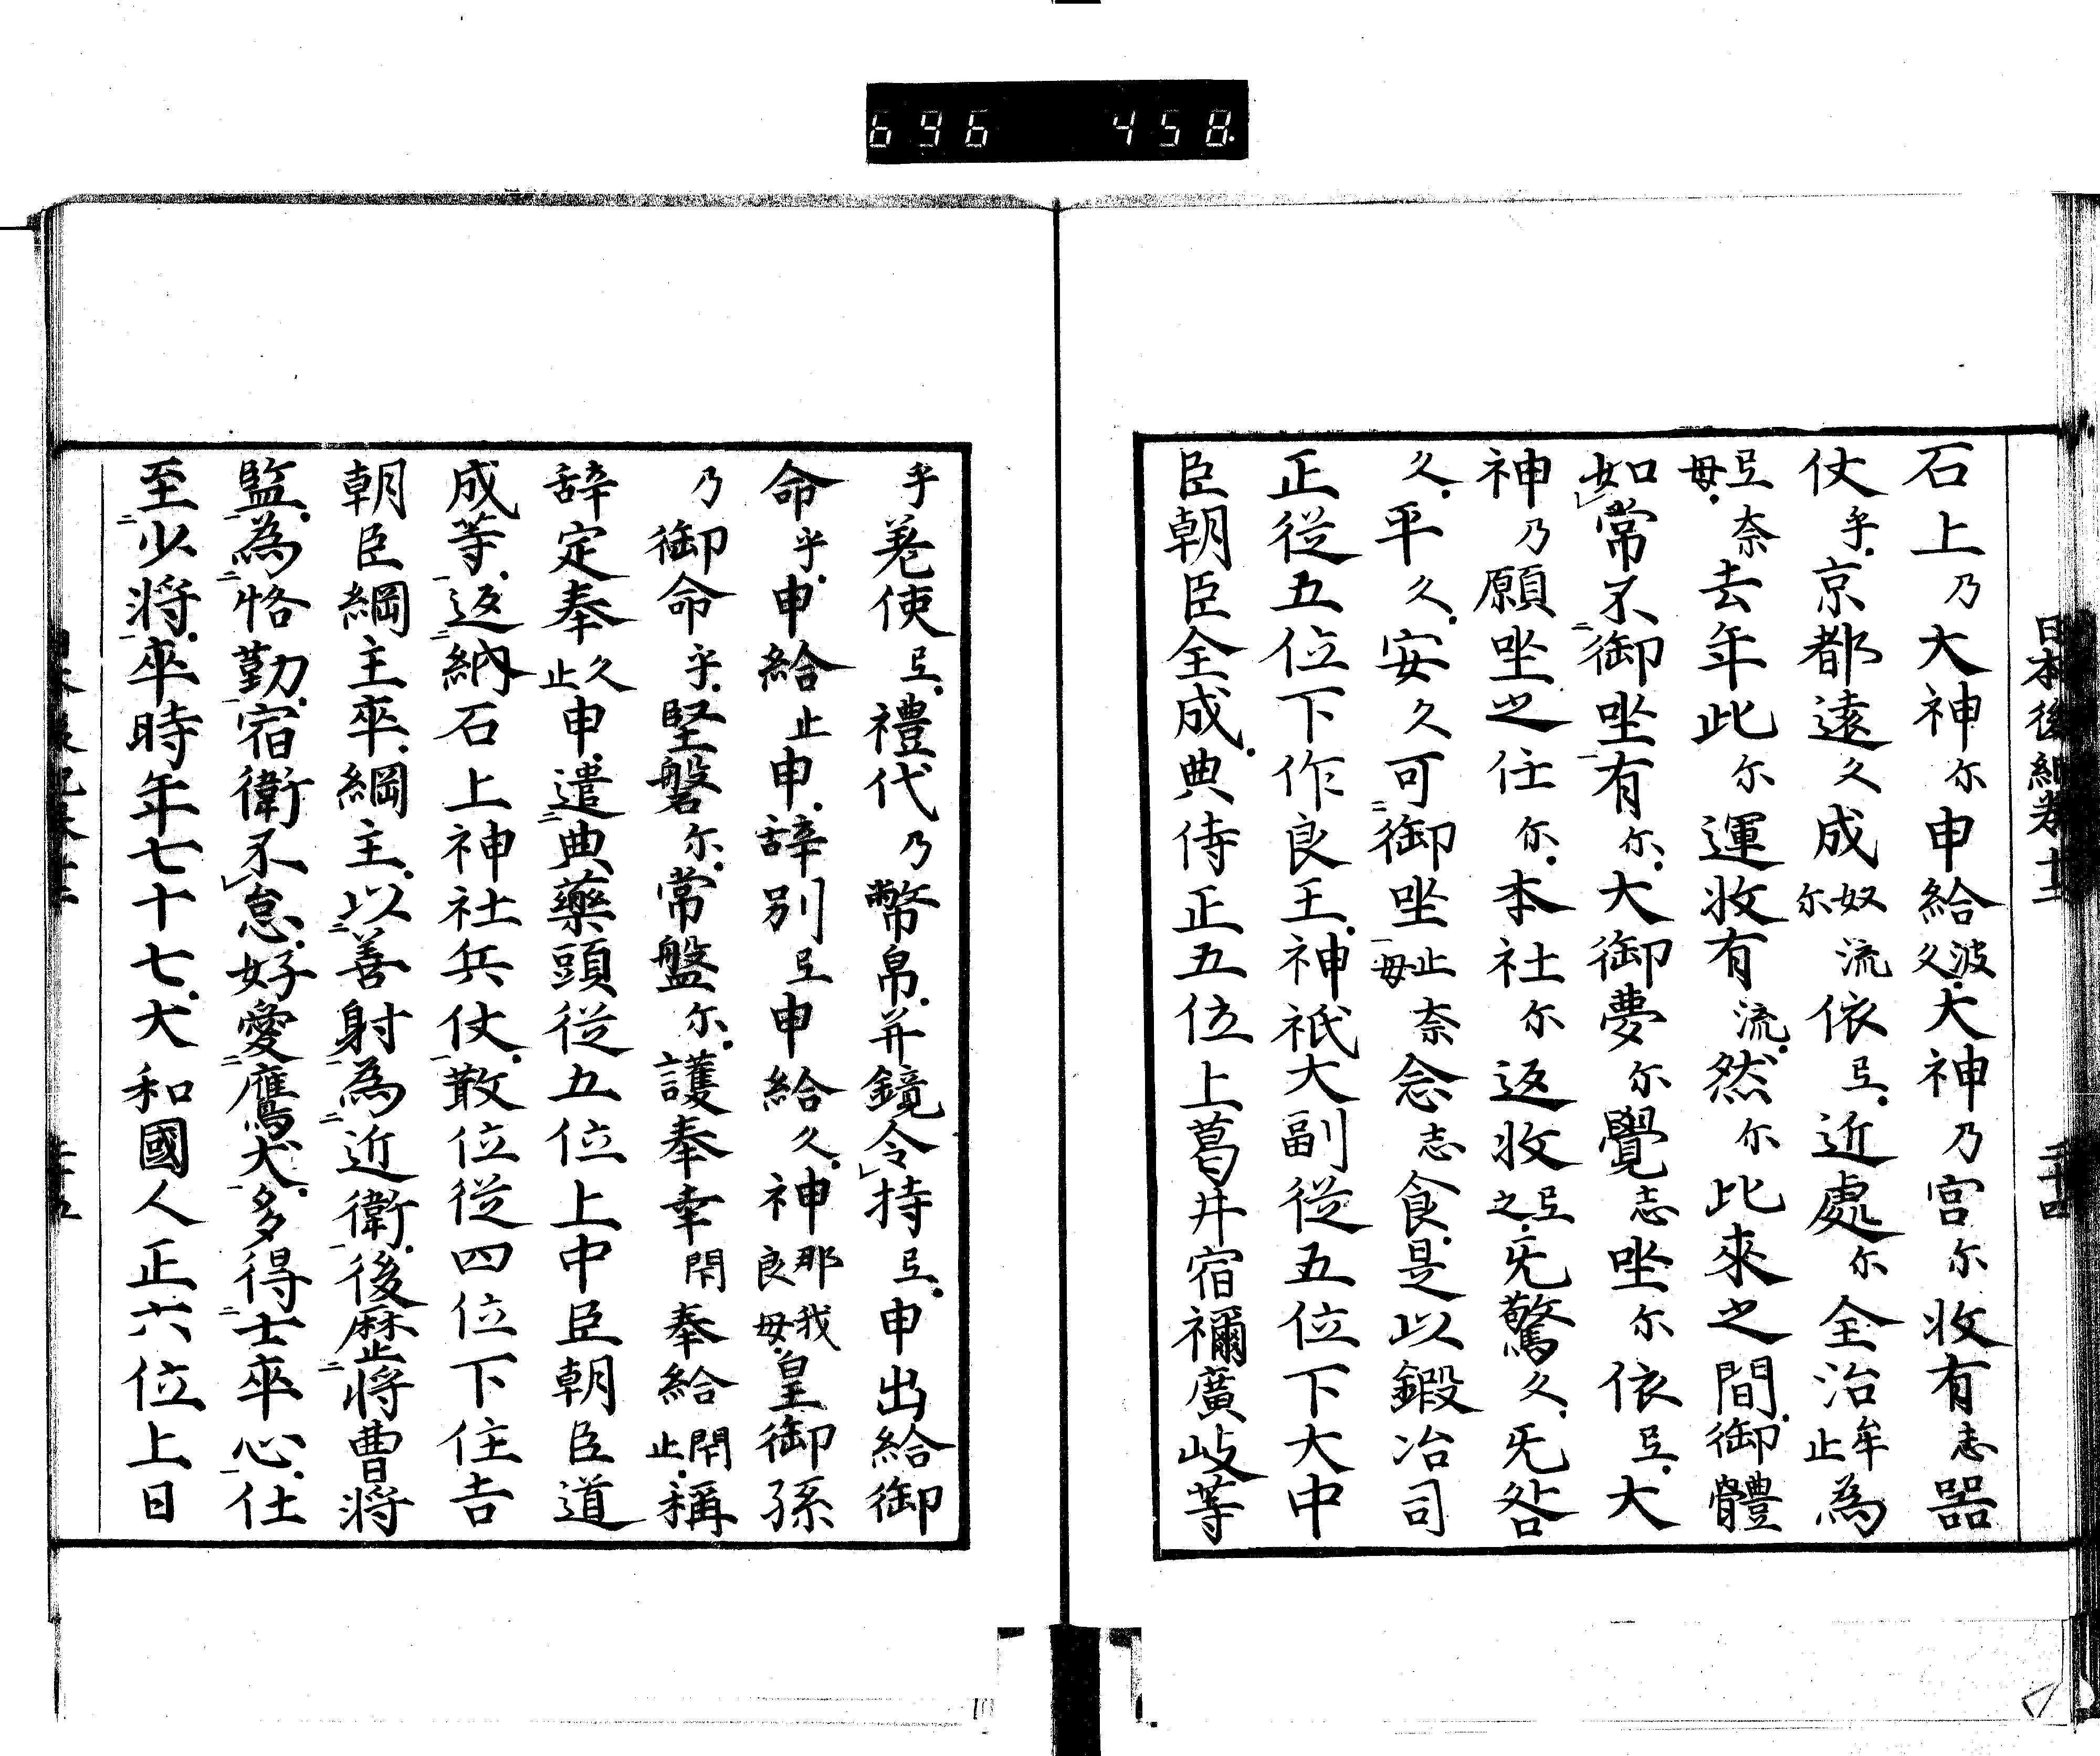 696 458
日本後紀卷十二 二十四
石上乃大神尓申給波久大神乃宮尓收有志器
仗乎京都遠久成奴流尓依弖近處尓全治牟止為
弖奈母去年此尓運收有流然尓比來之間御體
如常不御坐有尓大御夢尓覺志坐尓依弖大
神乃願坐之任尓本社尓返收弖之无驚久无咎
久平久安久可御坐止奈母念志食是以鍛冶司
正從五位下作良王神祇大副從五位下大中
臣朝臣全成典侍正五位上葛井宿禰廣岐等
乎差使弖禮代乃幣帛并鏡令持弖申出給御
命乎申給止申辞別弖申給久神那我良母皇御孫
乃御命乎堅磐尓常磐尓護奉幸閇奉給閇止稱
辞定奉久止申遣典藥頭從五位上中臣朝臣道
成等返納石上神社兵仗散位從四位下住吉
朝臣綱主卒綱主以善射為近衛後歷將曹將
監為恪勤宿衛不怠好愛鷹犬多得士卒心仕
至少將卒時年七十七大和國人正六位上日